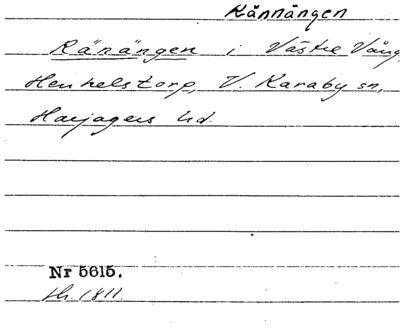 Rännängen
Ränängen i Västre Vång
Henkelstorp, V. Karaby sn,
Harjagers hd.
Nr 5615.
th. 1811.